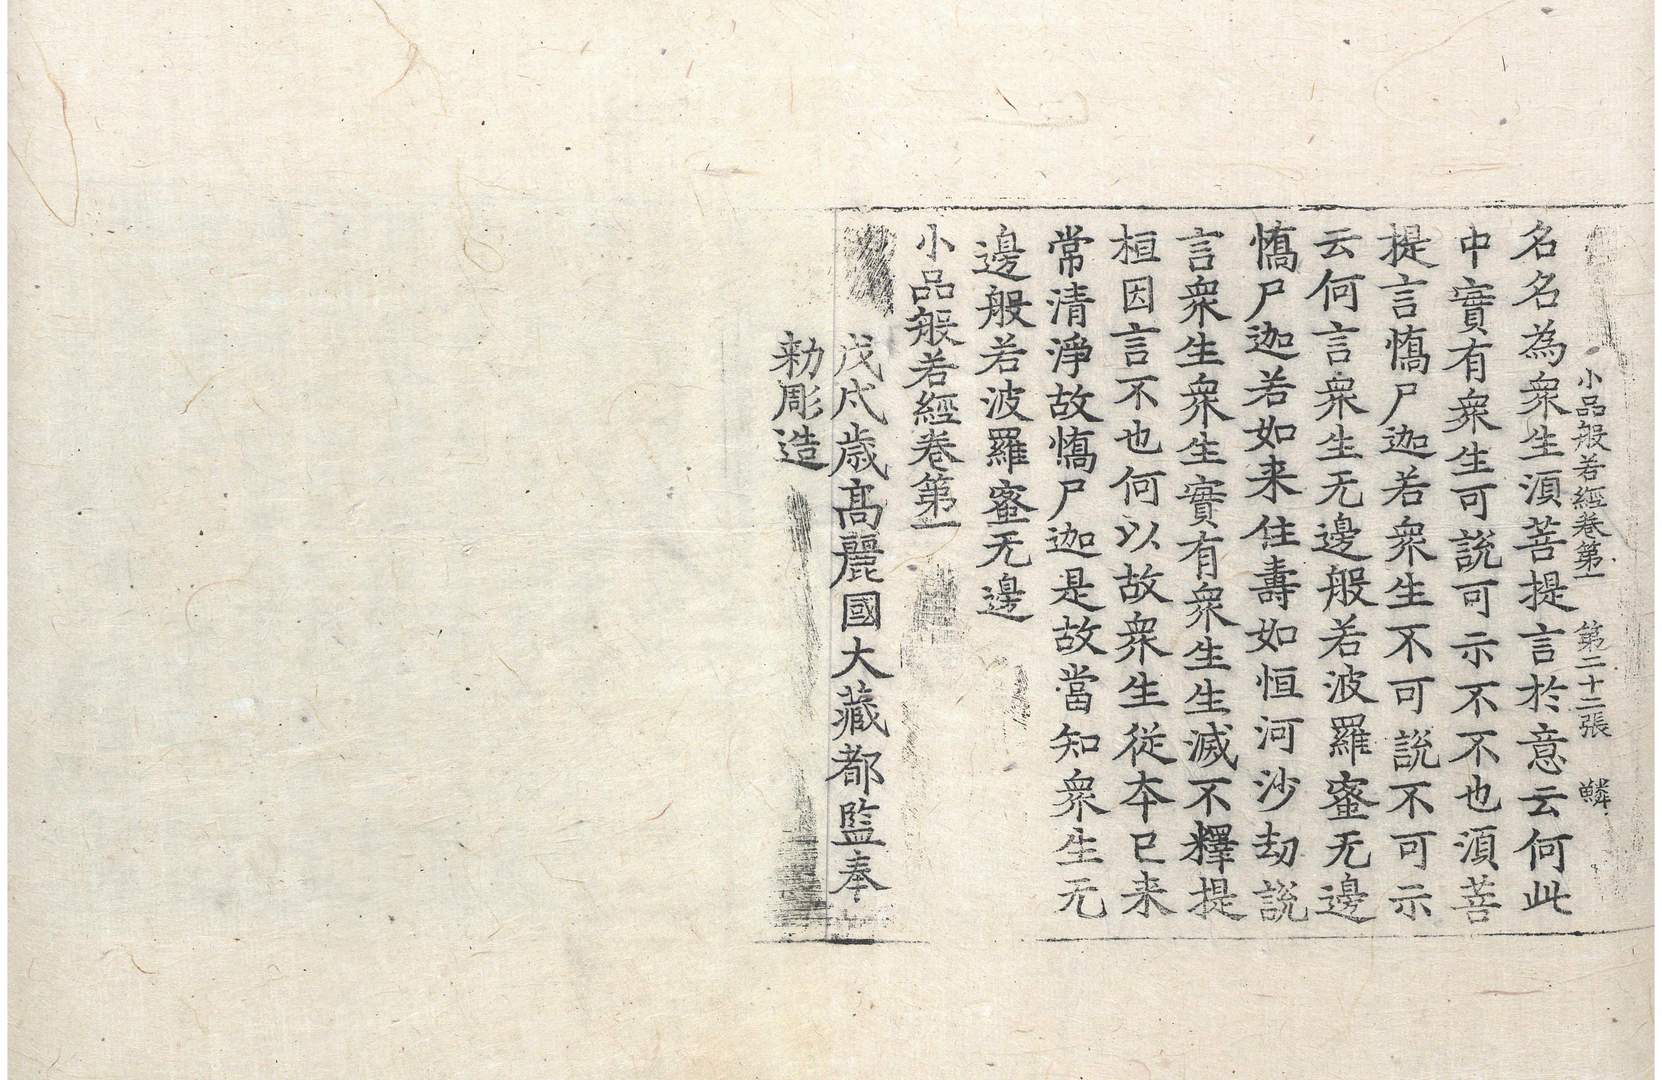 小品般若經卷第一 第二十二張 鱗
名名為衆生湏菩提言於意云何此
中實有衆生可說可示不不也湏菩
提言憍尸迦若衆生不可說不可示
云何言衆生无邊般若波羅蜜无邊
憍尸迦若如来住壽如恒河沙劫說
言衆生衆生實有衆生生滅不釋提
桓因言不也何以故衆生從夲已来
常清淨故憍尸迦是故當知衆生无
邊般若波羅蜜无邊
小品般若經卷第一
戊戍歲髙麗國大藏都監奉
勑彫造